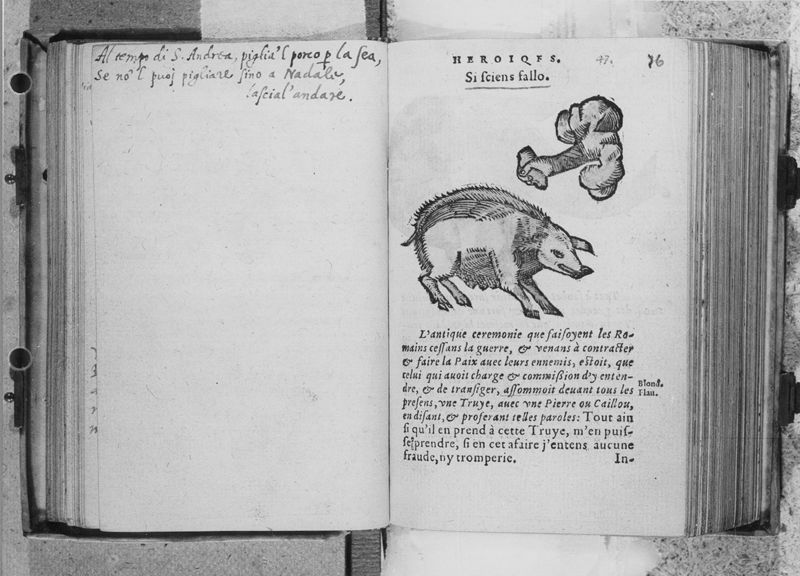 Al tempo di S. Andrea, piglia'l porco p la sea,
Se nō'l puoj pigliare sino a Nadale,
lascial'andare.
HEROIQVES.
47.
76
Si sciens fallo.
L'antique ceremonie que faisoyent les Ro-
mains cessans la guerre, & venans à contracter
& faire la Paix auec leurs ennemis, estoit, que
celui qui auoit charge & commißion d'y enten-
dre, & de transiger, assommoit deuant tous les
presens, vne Truye, auec vne Pierre ou Caillou,
en disant, & proferant telles paroles: Tout ain
si qu'il en prend à cette Truye, m'en puis-
se prendre, si en cet afaire j'entens aucune
fraude, ny tromperie.
In-
Blond.
Flau.